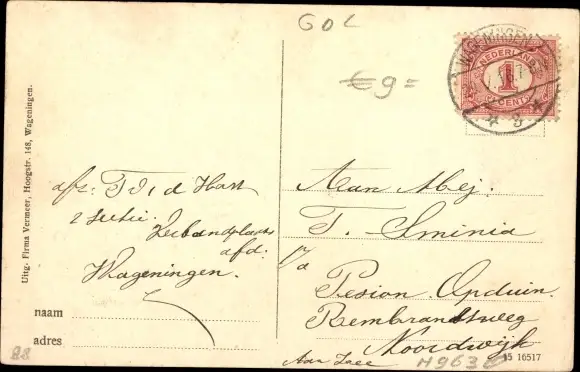 GOL
€9=
WAGENINGEN
NEDERLAND
1
CENT
Uitg. Firma Vermeer, Hoogstr. 148, Wageningen.
afz: T. J. d Hart
2
afd.
Wageningen.
naam
adres
Aan Mej.
T. Sminia
p/a
Pesion Opduin.
Rembrandtweg
Noordwijk
Aan Zee
88
H9638
15 16517